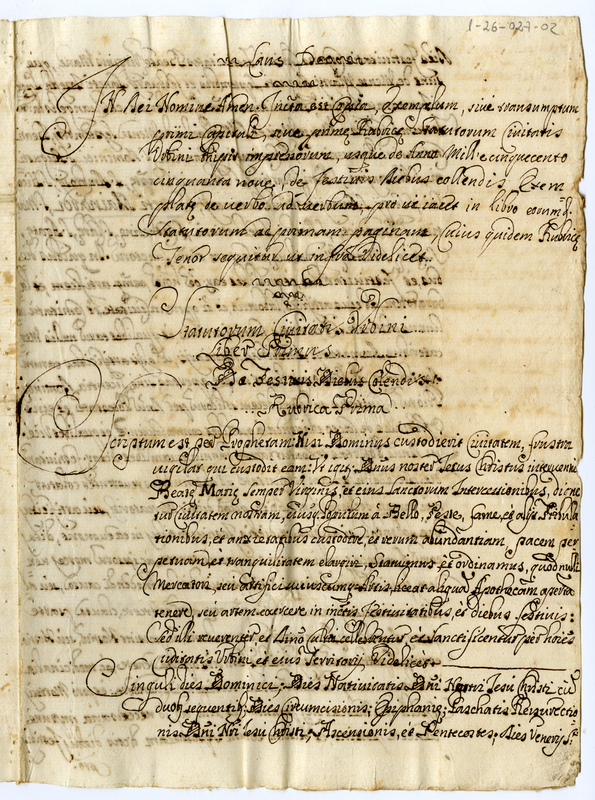 1-26-027-02
Laus Deo
IN Dei Nomine Amen. Incta est Copia, exemplum, sive transumptum
primi Capituli, sive prime Rubrice Statutorum Civitatis
Urbini impressorum, usque de Anno Mille cinquecento
cinquanta nove, de festivis diebus colendis. Exem
plate de verbo ad verbum, pro ut iacet in libro eorumdem
Statutorum ad primam paginam, Cuius quidem Rubrice
Tenor sequitur ut infra Videlicet.
Statutorum Civitatis Urbini
Liber Primus
De Festivis Diebus Colendis
Rubrica Prima
Scriptum est per Prophetam: Nisi Dominus custodierit Civitatem, frustra
vigilat qui custodit eam: Ut igit. Dnus noster Jesus Christus interventu
Beate Marie semper Virginis, et eius Sanctorum Intercessionibus, digne
tur Civitatem nostram, eiusq. Populum à Bello, Peste, fame, et alijs Tribula
tionibus, et anxietatibus custodire, et rerum abundantiam, pacem per
petuam, et tranquilitatem elargiri, Statuimus, et ordinamus, quod nulli
Mercatori, seu artifici cuiuscumq. Artis, liceat aliquam Apothecam aperta
tenere, seu artem exercere in inctis festivitatibus, et diebus festivis:
Sed illi reverenter et celebrentur et sanctificentur per hoies
Civitatis Urbini, et eius Territorij Videlicet
Singuli dies Dominici; Dies Nativitatis Dni Nostri Jesu Christi cu
duob. sequentib. Dies Circumcisionis; Epiphanie; Paschatis Resurrectio
nis Dni Nri Jesu Christi; Ascensionis, et Pentecostes, Dies Veneris